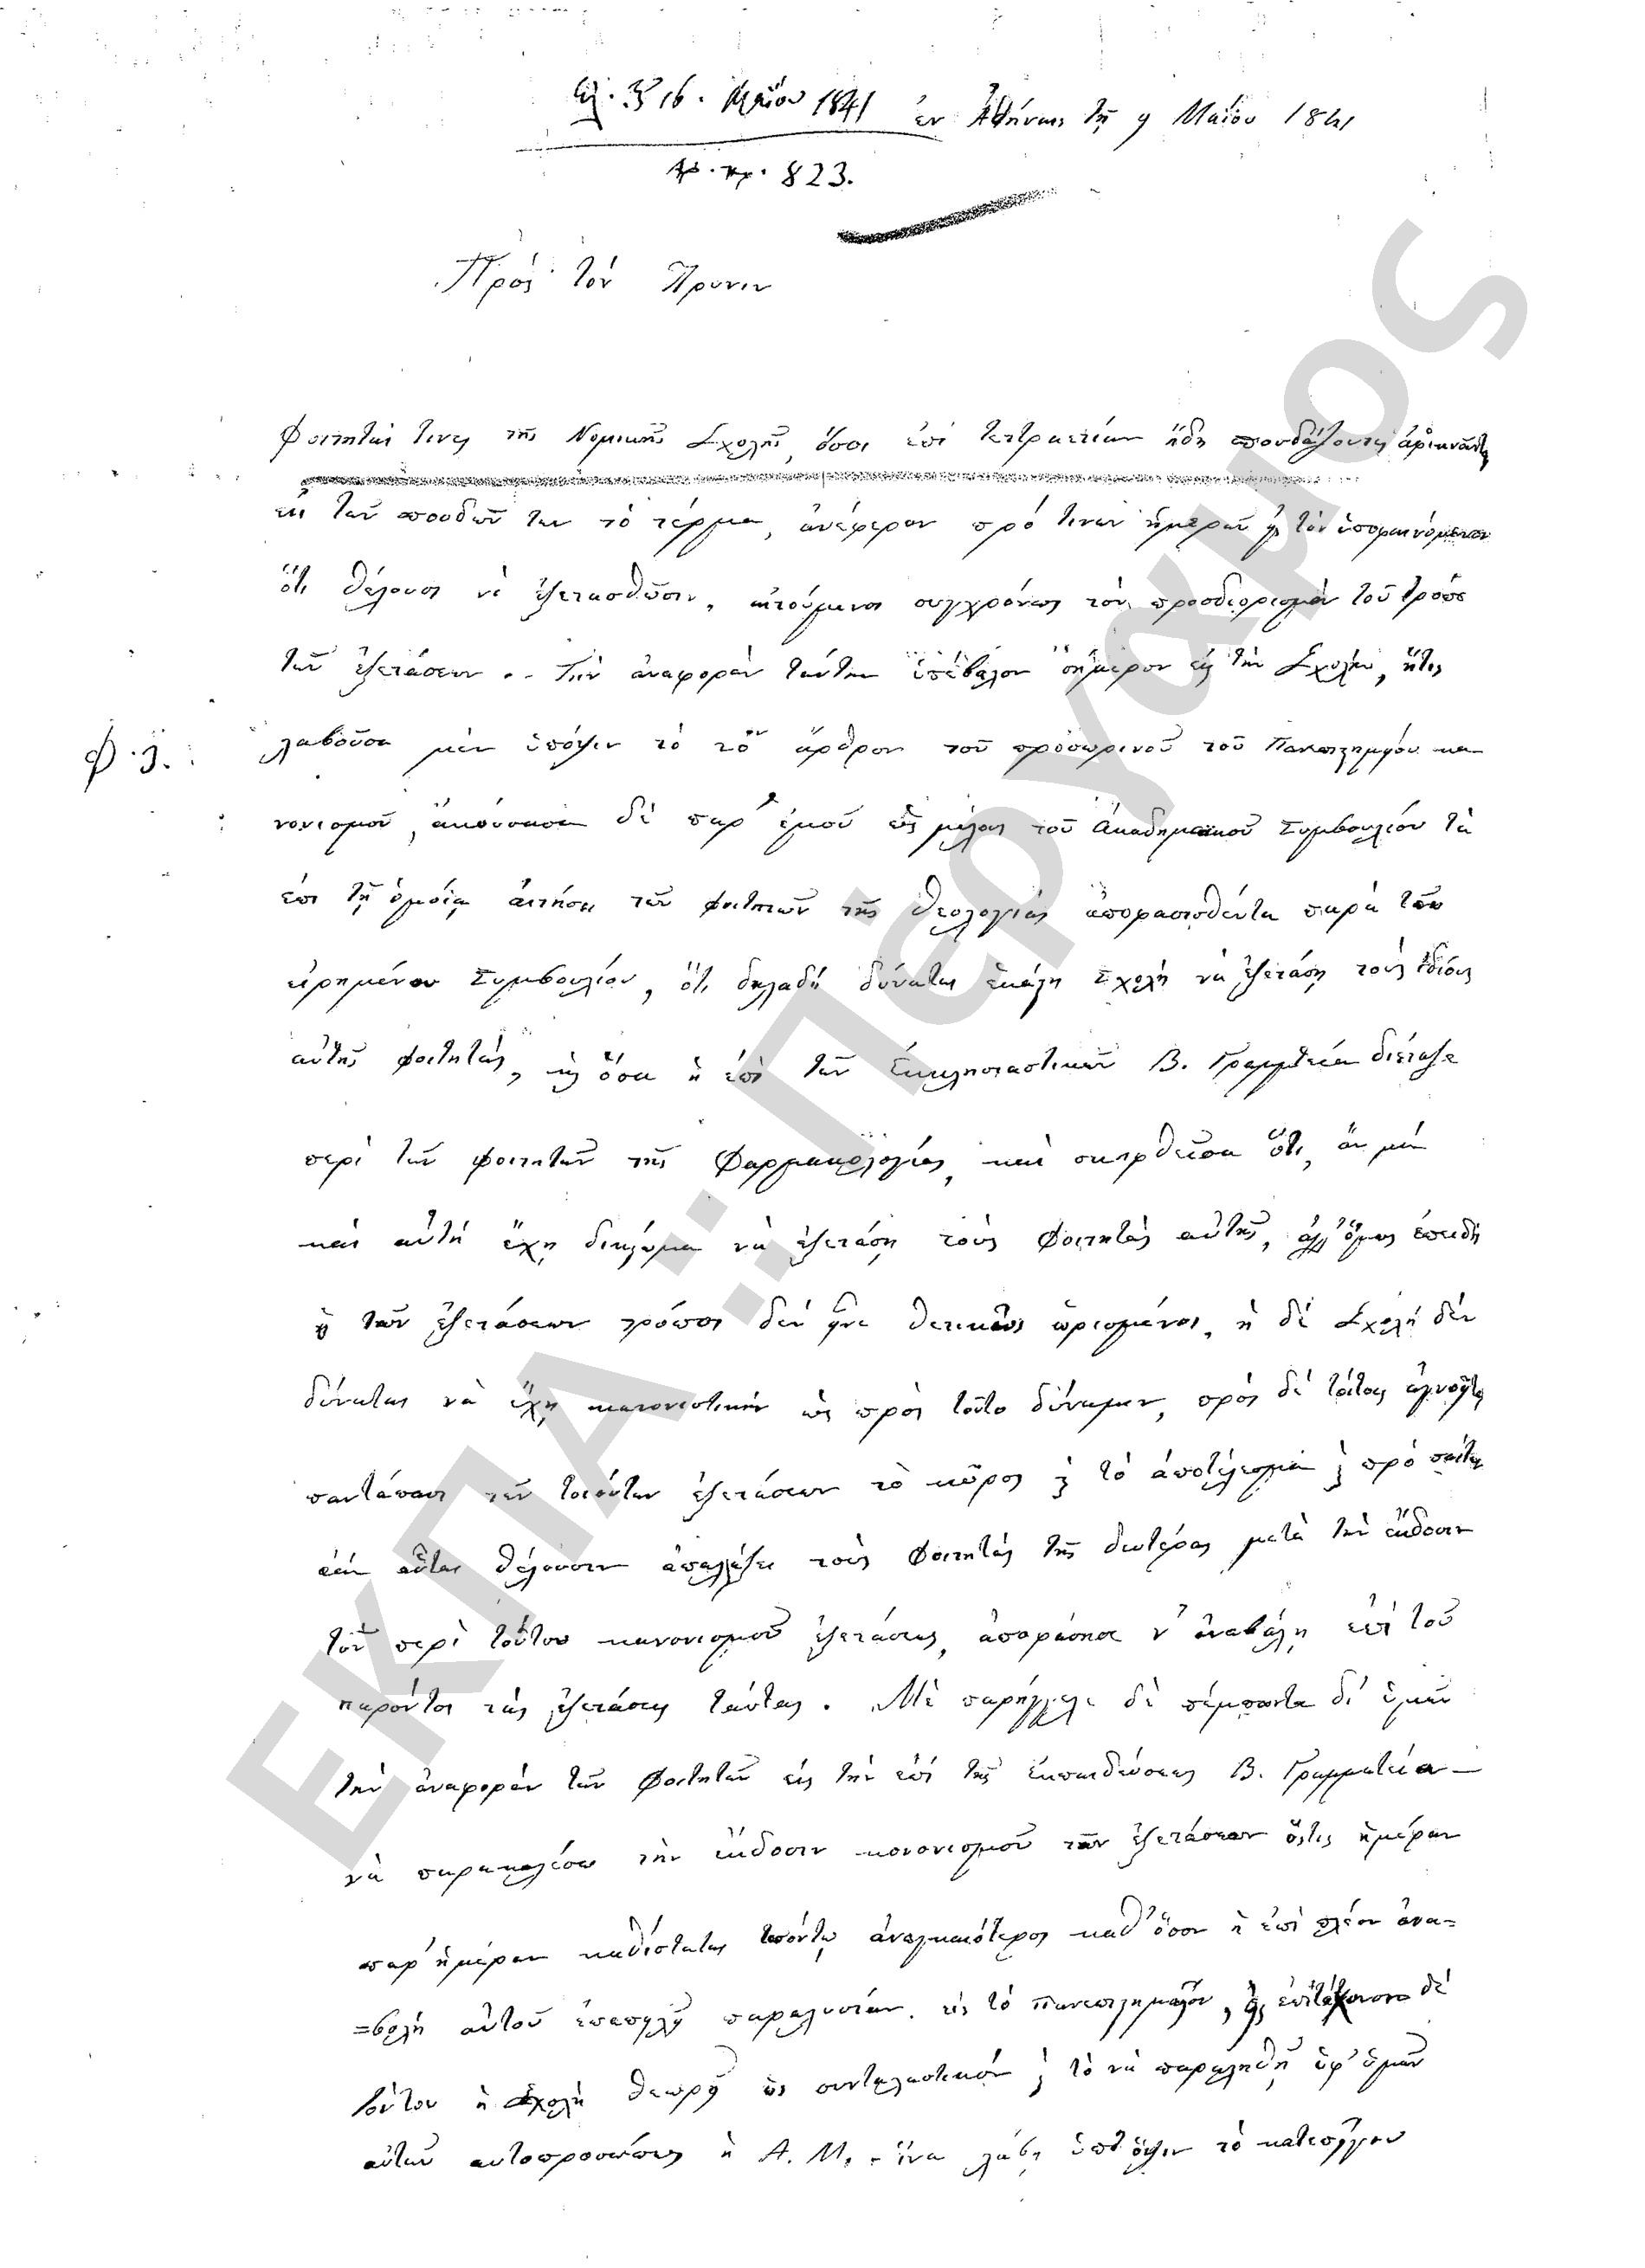 16. Μαΐου 1841 ἐν Ἀθήναις τῇ 9 Μαΐου 1841
Αρ. πρ. 823.
Πρὸς τὸν Πρύτανιν
Φοιτηταί τινες τῆς Νομικῆς Σχολῆς, ὅσοι ἐπὶ τετραετίαν ἤδη σπουδάζοντες
εἰς τῶν σπουδῶν των τὸ τέρμα, ἀνέφερον πρό τινων ἡμερῶν τὸν ὑποφαινόμενον
ὅτι θέλουσι νὰ ἐξετασθῶσιν, αἰτούμενοι συγχρόνως τὸν προσδιορισμὸν τοῦ τρόπου
τῶν ἐξετάσεων. Τὴν ἀναφορὰν ταύτην ὑπέβαλον σήμερον εἰς τὴν Σχολὴν, ἥτις
Φ. 3. λαβοῦσα μὲν ὑπόψιν τὸ ἄρθρον τοῦ προσωρινοῦ τοῦ Πανεπιστημίου κα
νονισμοῦ, ἀκούσασα δὲ παρ' ἐμοῦ ὡς μέλους τοῦ Ἀκαδημαϊκοῦ Συμβουλίου τὰ
ἐπὶ τῇ ὁμοίᾳ αἰτήσει τῶν φοιτητῶν τῆς Θεολογίας ἀποφασισθέντα παρὰ τοῦ
εἰρημένου Συμβουλίου, ὅτι δηλαδὴ δύναται ἑκάστη Σχολὴ νὰ ἐξετάσῃ τοὺς ἰδίους
αὐτῆς φοιτητὰς, καὶ ὅσα ἡ ἐπὶ τῶν Ἐκκλησιαστικῶν Β. Γραμματεία διέταξε
περὶ τῶν φοιτητῶν τῆς Φαρμακολογίας, καὶ σκεφθεῖσα ὅτι, ἂν μὲν
καὶ αὐτὴ ἔχῃ δικαίωμα νὰ ἐξετάσῃ τοὺς Φοιτητὰς αὐτῆς, ἀλλ' ὅμως ἐπειδὴ
ὁ τῶν ἐξετάσεων τρόπος δὲν εἶνε θετικῶς ὡρισμένος, ἡ δὲ Σχολὴ δὲν
δύναται νὰ ἔχῃ κανονιστικὴν ὡς πρὸς τοῦτο δύναμιν, πρὸς δὲ τούτοις ἀγνοεῖται
παντάπασι τῶν τοιούτων ἐξετάσεων τὸ κῦρος καὶ τὸ ἀποτέλεσμα καὶ πρὸ πάντων
ἐὰν αὗται θέλουσιν ἀπαλλάξει τοὺς Φοιτητὰς τῆς δευτέρας μετὰ τὴν ἔκδοσιν
τοῦ περὶ τούτου κανονισμοῦ ἐξετάσεως, ἀπεφάσισε ν' ἀναβάλῃ ἐπὶ τοῦ
παρόντος τὰς ἐξετάσεις ταύτας. Μὲ παρήγγειλε δὲ πέμποντα δι' ὑμῶν
τὴν ἀναφορὰν τῶν Φοιτητῶν εἰς τὴν ἐπὶ τῆς Ἐκπαιδεύσεως Β. Γραμματεία
νὰ παρακαλέσω τὴν ἔκδοσιν κανονισμοῦ τῶν ἐξετάσεων ὅστις ἡμέραν
παρ' ἡμέραν καθίσταται τοσούτῳ ἀναγκαιότερος καθ' ὅσον ἡ ἐπὶ πλέον ἀνα=
=βολὴ αὐτοῦ ἐπαπειλεῖ παραλυσίαν εἰς τὸ πανεπιστημεῖον, δὲ
τούτου ἡ Σχολὴ θεωρεῖ ὡς συνταλεστικὸν καὶ τὸ νὰ παρακληθῇ ὑφ' ὑμῶν
αὐτῶν αὐτοπροσώπως ἡ Α. Μ. ἵνα λάβῃ ὑπ' ὄψιν τὸ κατεπεῖγον
ΕΚΠΑ: Πέργαμος